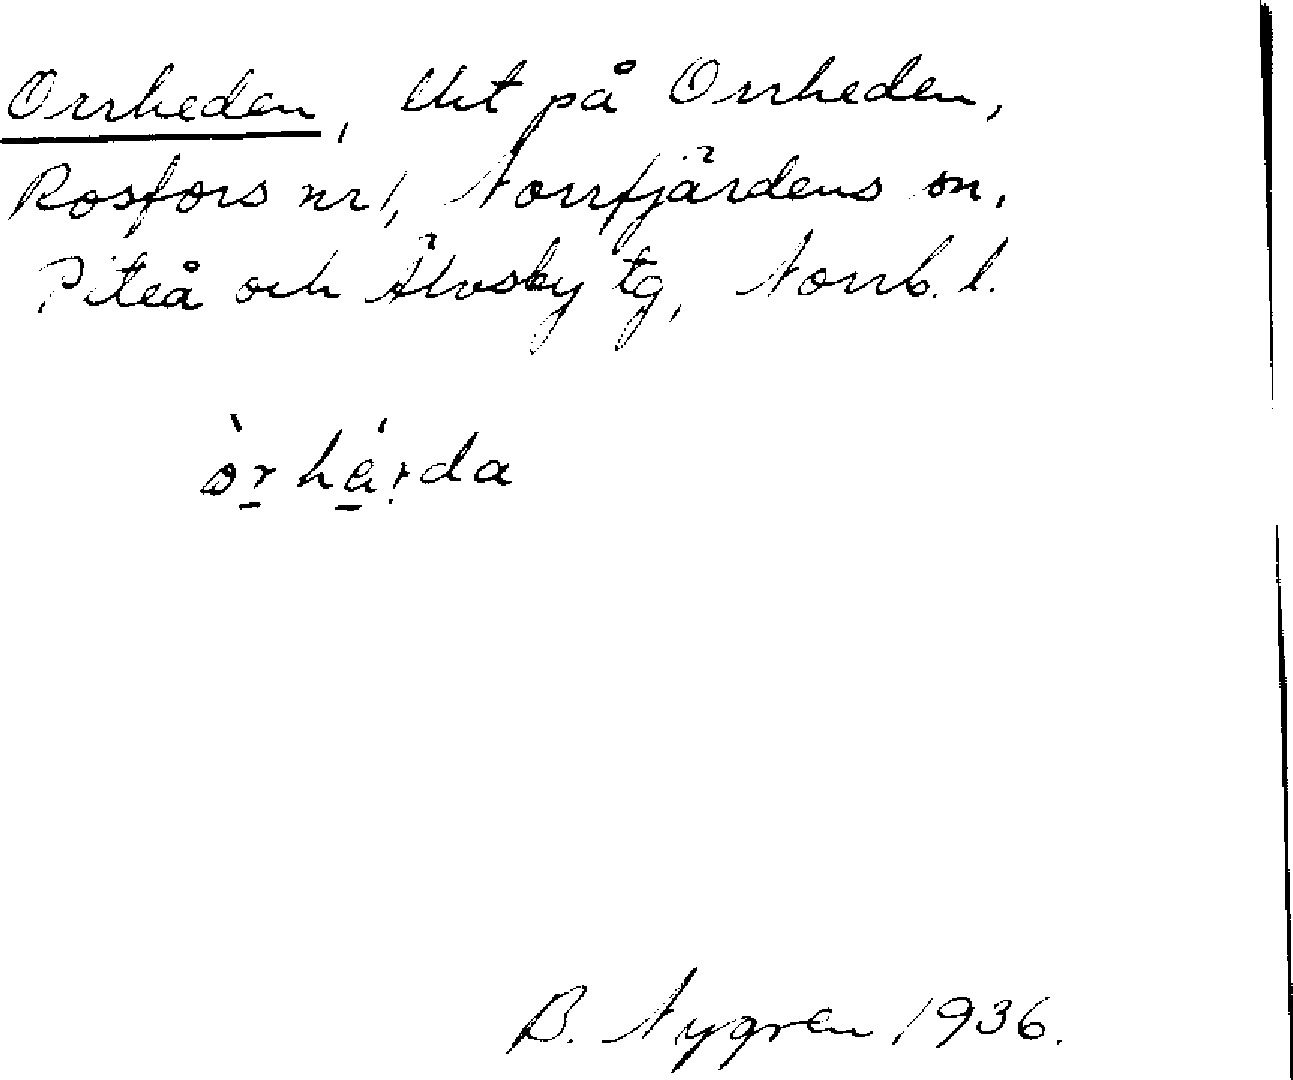 Orrheden, tkt på Orrheden,
Rosfors nr 1, Norrfjärdens sn.
Piteå och Älvsby tg, Norrb. l.
B. Nygren 1936.